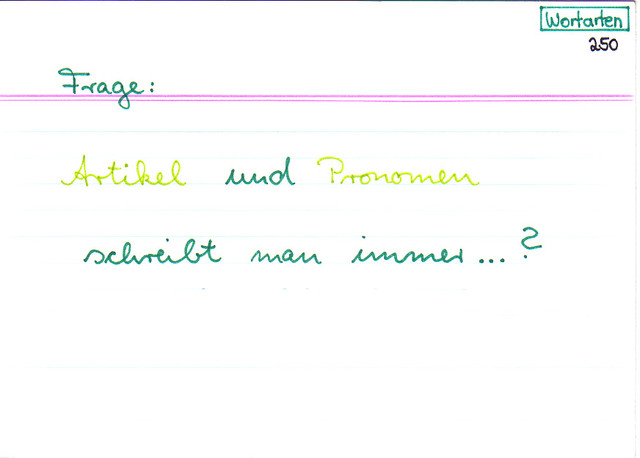 Wortarten
250
Frage:
Artikel und Pronomen
schreibt man immer...?